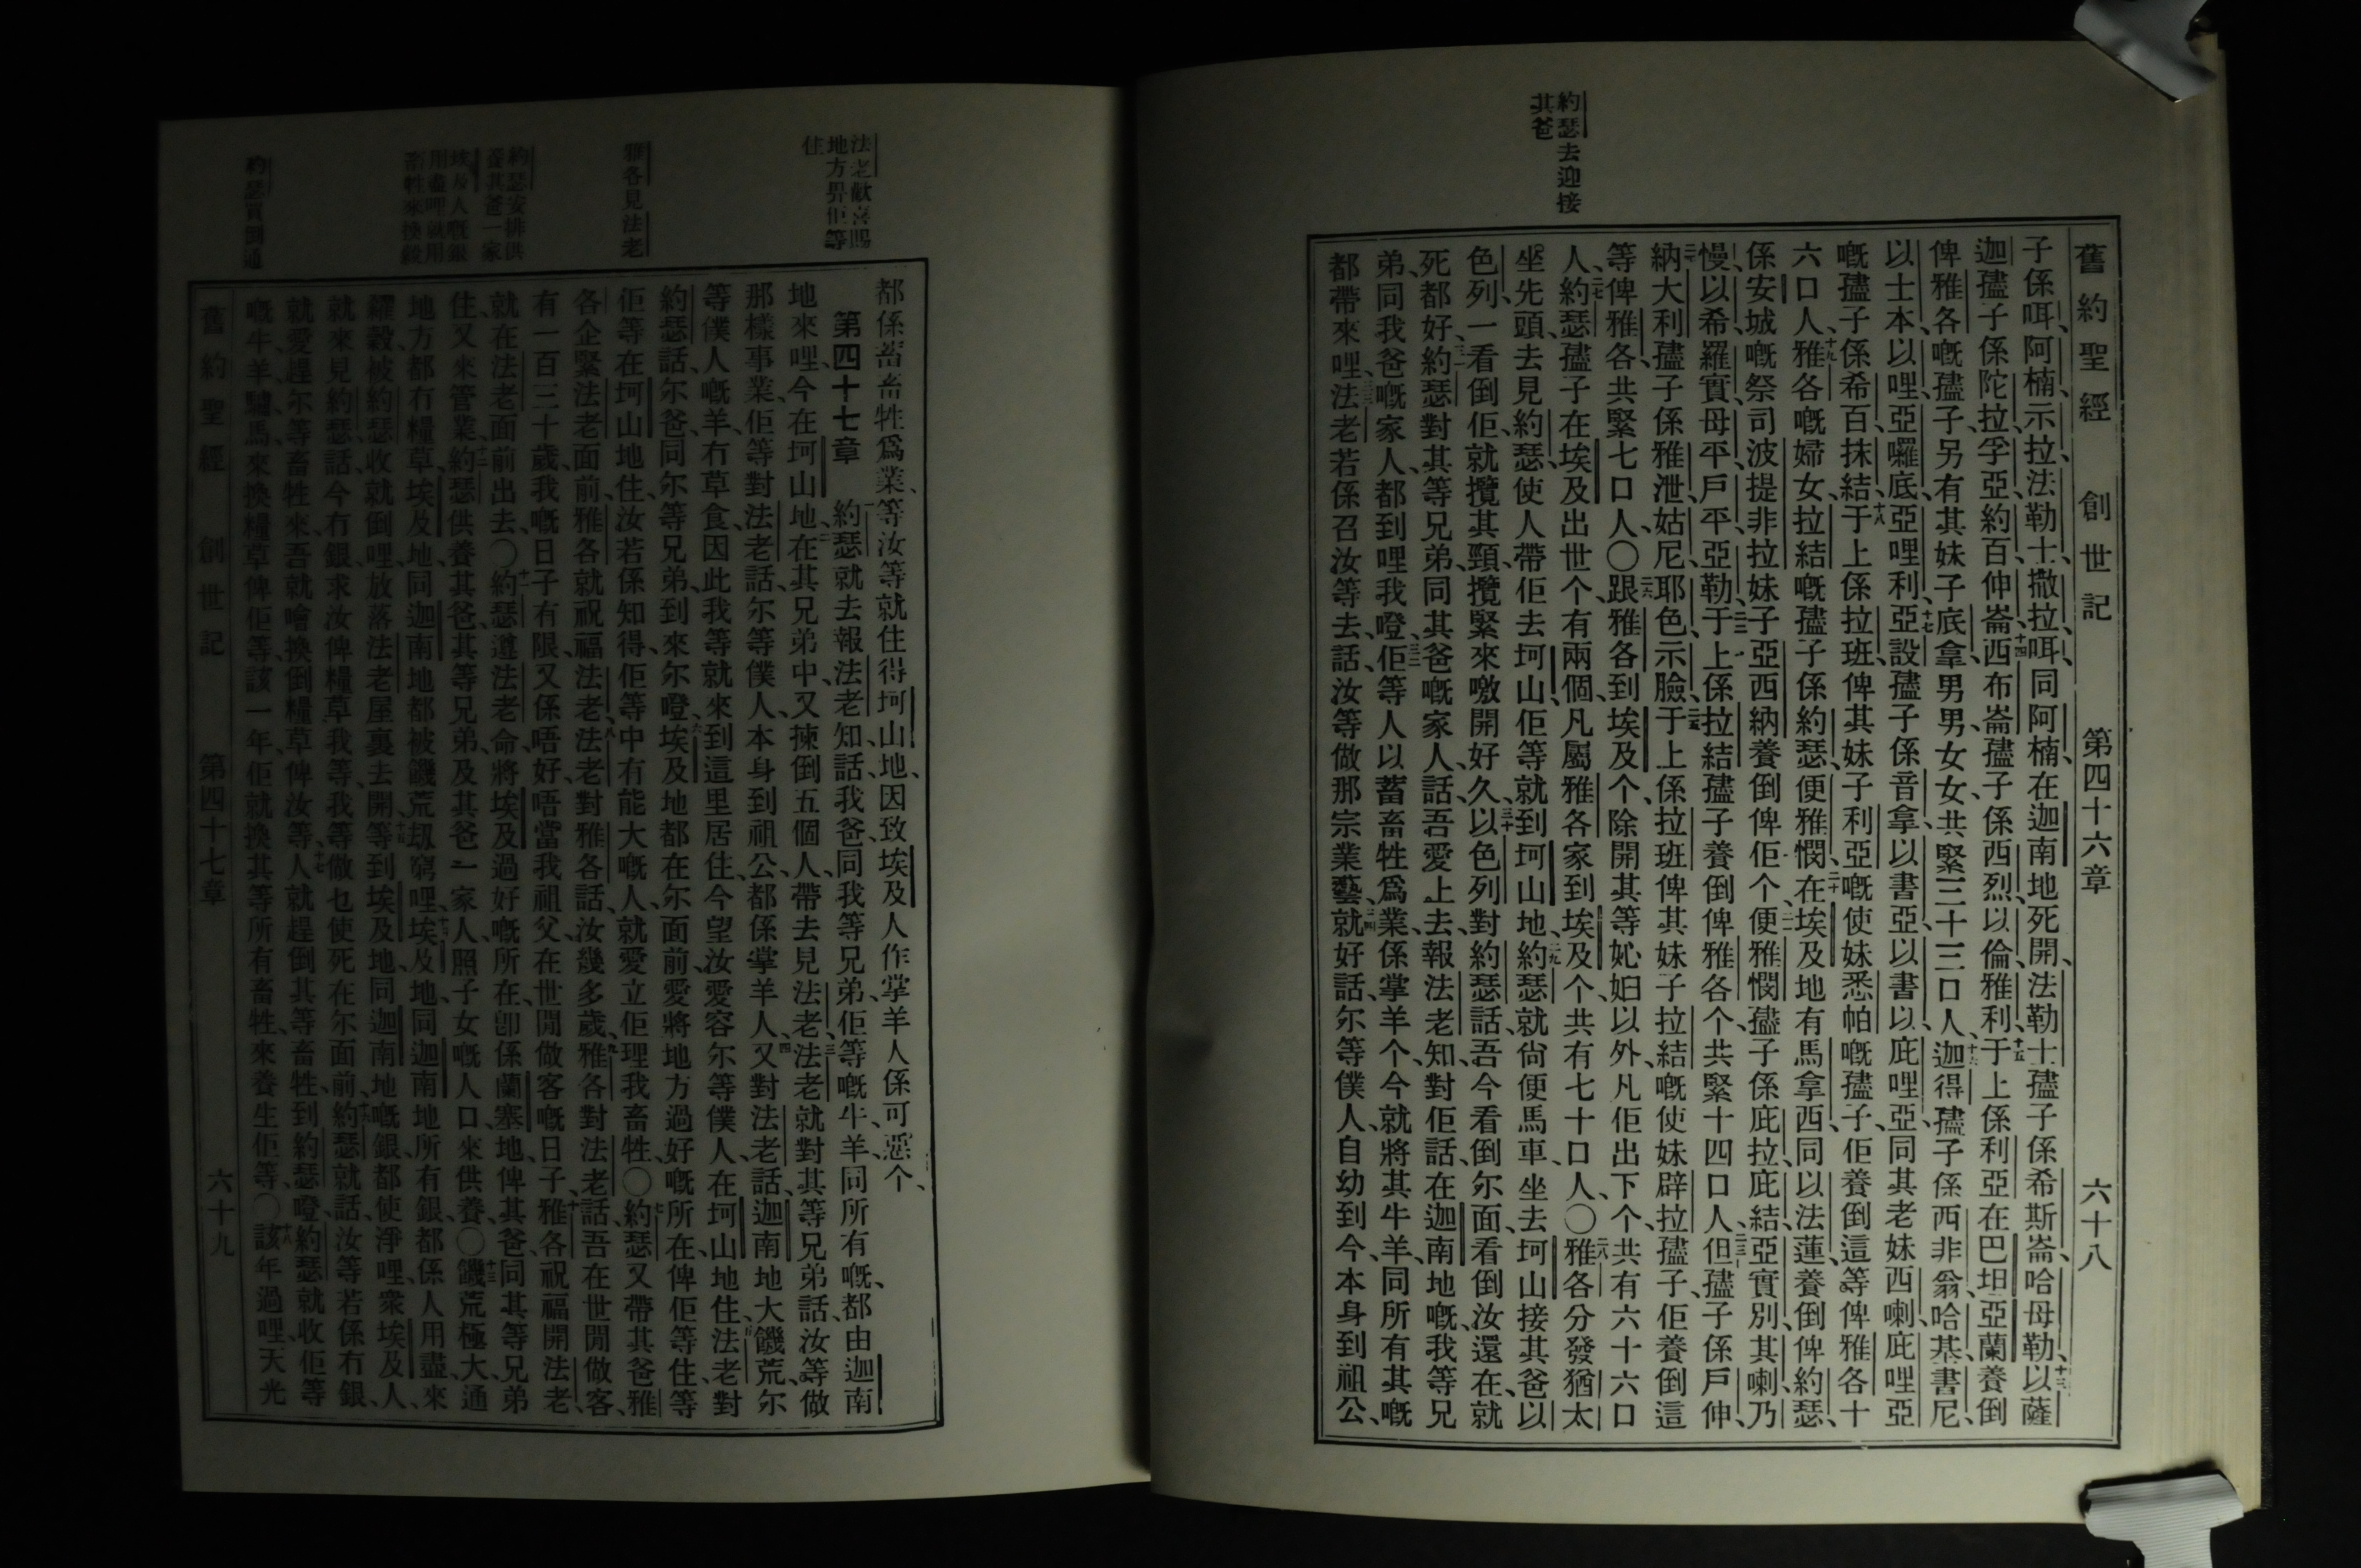 舊約聖經 創世記 第四十六章 六十八
約瑟去迎接
其爸
子係咡、阿楠、示拉、法勒士、撒拉咡、同阿楠在迦南地死開、法勒士孻子係希斯崙、哈母勒、十三以薩
迦孻子係陀拉、孚亞、約百、伸崙、十四西布崙孻子係西烈、以倫、雅利、十五于上係利亞在巴坦亞蘭養倒
俾雅各嘅孻子、另有其妹子底拿、男男女女、共緊三十三口人、十六迦得孻子係西非翁、哈基、書尼、
以士本、以哩、亞囉底、亞哩利、十七亞設孻子係音拿、以書亞、以書以、庇哩亞、同其老妹西喇、庇哩亞
嘅孻子係希百、抹結、十八于上係拉班俾其妹子利亞嘅使妹悉帕嘅孻子、佢養倒這等俾雅各、十
六口人、十九雅各嘅婦女拉結嘅孻子係約瑟、便雅憫、二十在埃及地有馬拿西、同以法蓮、養倒俾約瑟、
係安城嘅祭司波提非拉妹子亞西納養倒俾佢个、二一便雅憫孻子係庇拉、庇結、亞實別、其喇、乃
慢、以希、羅實、母平、戶平、亞勒、二二于上係拉結孻子養倒俾雅各个、共緊十四口人、二三但孻子係戶伸、
二四納大利孻子係雅泄、姑尼、耶色、示臉、二五于上係拉班俾其妹子拉結嘅使妹辟拉孻子、佢養倒這
等俾雅各、共緊七口人、〇二六跟雅各到埃及个、除開其等妣妇以外、凡佢出下个、共有六十六口
人、二七約瑟孻子在埃及出世个有兩個、凡屬雅各家到埃及个、共有七十口人、〇二八雅各分發猶太
坐先頭、去見約瑟、使人帶佢去坷山、佢等就到坷山地、二九約瑟就尙便馬車、坐去坷山接其爸以
色列、一看倒佢、就攬其頸、攬緊來噭開好久、三十以色列對約瑟話、吾今看倒尔面、看倒汝還在、就
死都好、三一約瑟對其等兄弟、同其爸嘅家人話、吾愛上去、報法老知、對佢話、在迦南地嘅、我等兄
弟、同我爸嘅家人、都到哩我噔、三二佢等人以蓄畜牲爲業、係掌羊个、今就將其牛羊、同所有其嘅
都帶來哩、三三法老若係召汝等去、話汝等做那宗業藝、三四就好話、尔等僕人、自幼到今、本身到祖公、
法老歡喜賜
地方畀佢等
住
雅各見法老
約瑟安排供
養其爸一家
埃及人嘅銀
用盡哩就用
畜牲來換穀
都係畜畜牲爲業、等汝等就住得坷山地、因致埃及人作掌羊人係可惡个、
第四十七章 一約瑟就去報法老知、話、我爸、同我等兄弟、佢等嘅牛羊、同所有嘅、都由迦南
地來哩、今在坷山地、二在其兄弟中、又揀倒五個人、帶去見法老、三法老就對其等兄弟話、汝等做
那樣事業、佢等對法老話、尔等僕人、本身到祖公、都係掌羊人、四又對法老話、迦南地大饑荒、尔
等僕人嘅羊冇草食、因此我等就來到這里居住、今望汝愛容尔等僕人、在坷山地住、五法老對
約瑟話、尔爸、同尔等兄弟、到來尔噔、六埃及地都在尔面前、愛將地方過好嘅所在、俾佢等住、等
佢等在坷山地住、汝若係知得、佢等中有能大嘅人、就愛立佢理我畜牲、〇七約瑟又帶其爸雅
各、企緊法老面前、雅各就祝福法老、八法老對雅各話、汝幾多歲、九雅各對法老話、吾在世間做客、
有一百三十歲、我嘅日子有限、又係唔好、唔當我祖父在世間做客嘅日子、十雅各祝福開法老、
就在法老面前出去、〇十一約瑟遵法老命、將埃及過好嘅所在、卽係蘭塞地、俾其爸、同其等兄弟
住、又來管業、十二約瑟供養其爸、其等兄弟、及其爸一家人、照子女嘅人口來供養、〇十三饑荒極大、通
地方都冇糧草、埃及地、同迦南地、都被饑荒刼窮哩、十四埃及地、同迦南地所有銀、都係人用盡來
糴穀、被約瑟收就倒哩、放落法老屋裏去開、十五等到埃及地、同迦南地嘅銀都使淨哩、衆埃及人、
就來見約瑟、話、今冇銀、求汝俾糧草我等、我等做乜使死在尔面前、十六約瑟就話、汝等若係冇銀、
就愛趕尔等畜牲來、吾就噲換倒糧草俾汝等、十七人就趕倒其等畜牲、到約瑟噔、約瑟就收佢等
嘅牛羊、驢馬、來換糧草俾佢等、該一年、佢就換其等所有畜牲、來養生佢等、〇十八該年過哩、天光
舊約聖經 創世記 第四十七章 六十九